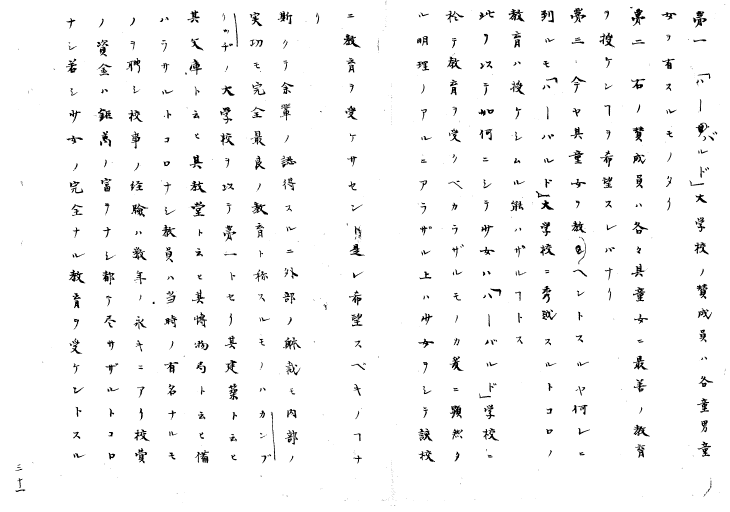 第一 「ハーバルド」大学校ノ賛成員ハ各童男童
女ヲ有スルモノタリ
第二 右ノ賛成員ハ各々其童女ニ最善ノ教育
ヲ授ケンヿヲ希望スレバナリ
第三 今ヤ其童女ヲ教ヘントスルヤ何レニ
列ルモ「ハーバルド」大学校ニ秀越スルトコロノ
教育ハ授ケシムル能ハザルヿトス
此ヲ以テ如何ニシテ少女ハ「ハーバルド」学校ニ
於テ教育ヲ受クベカラザルモノカ爰ニ顕然タ
ル明理ノアルニアラザル上ハ少女ヲシテ該校
ニ教育ヲ受ケサセンヿ是レ希望スベキノヿナ
リ
斯クテ余輩ノ認得スルニ外部ノ躰裁モ内部ノ
実功モ完全最良ノ教育ト称スルモノハカンブ
リッヂノ大学校ヲ以テ第一トセリ其建築ト云ヒ
其文庫ト云ヒ其教堂ト云ヒ其博物局ト云ヒ備
ハラサルトコロナシ教員ハ当時ノ有名ナルモ
ノヲ聘シ校事ノ経験ハ数年ノ永キニアリ校賞
ノ資金ハ鉅萬ノ富ヲナシ都テ尽サザルトコロ
ナシ若シ少女ノ完全ナル教育ヲ受ケントスル
三十一